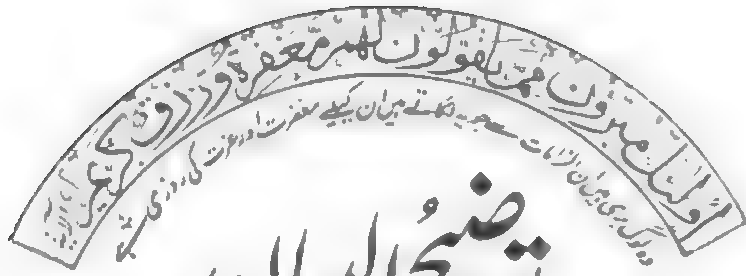 اولئك مبرءون مما يقولون لهم مغفرة ورزق كريم
وہ لوگ بری ہیں ان الزامات سے جو یہ لگاتے ہیں ان کیلئے مغفرت اور عزت کی روزی ہے